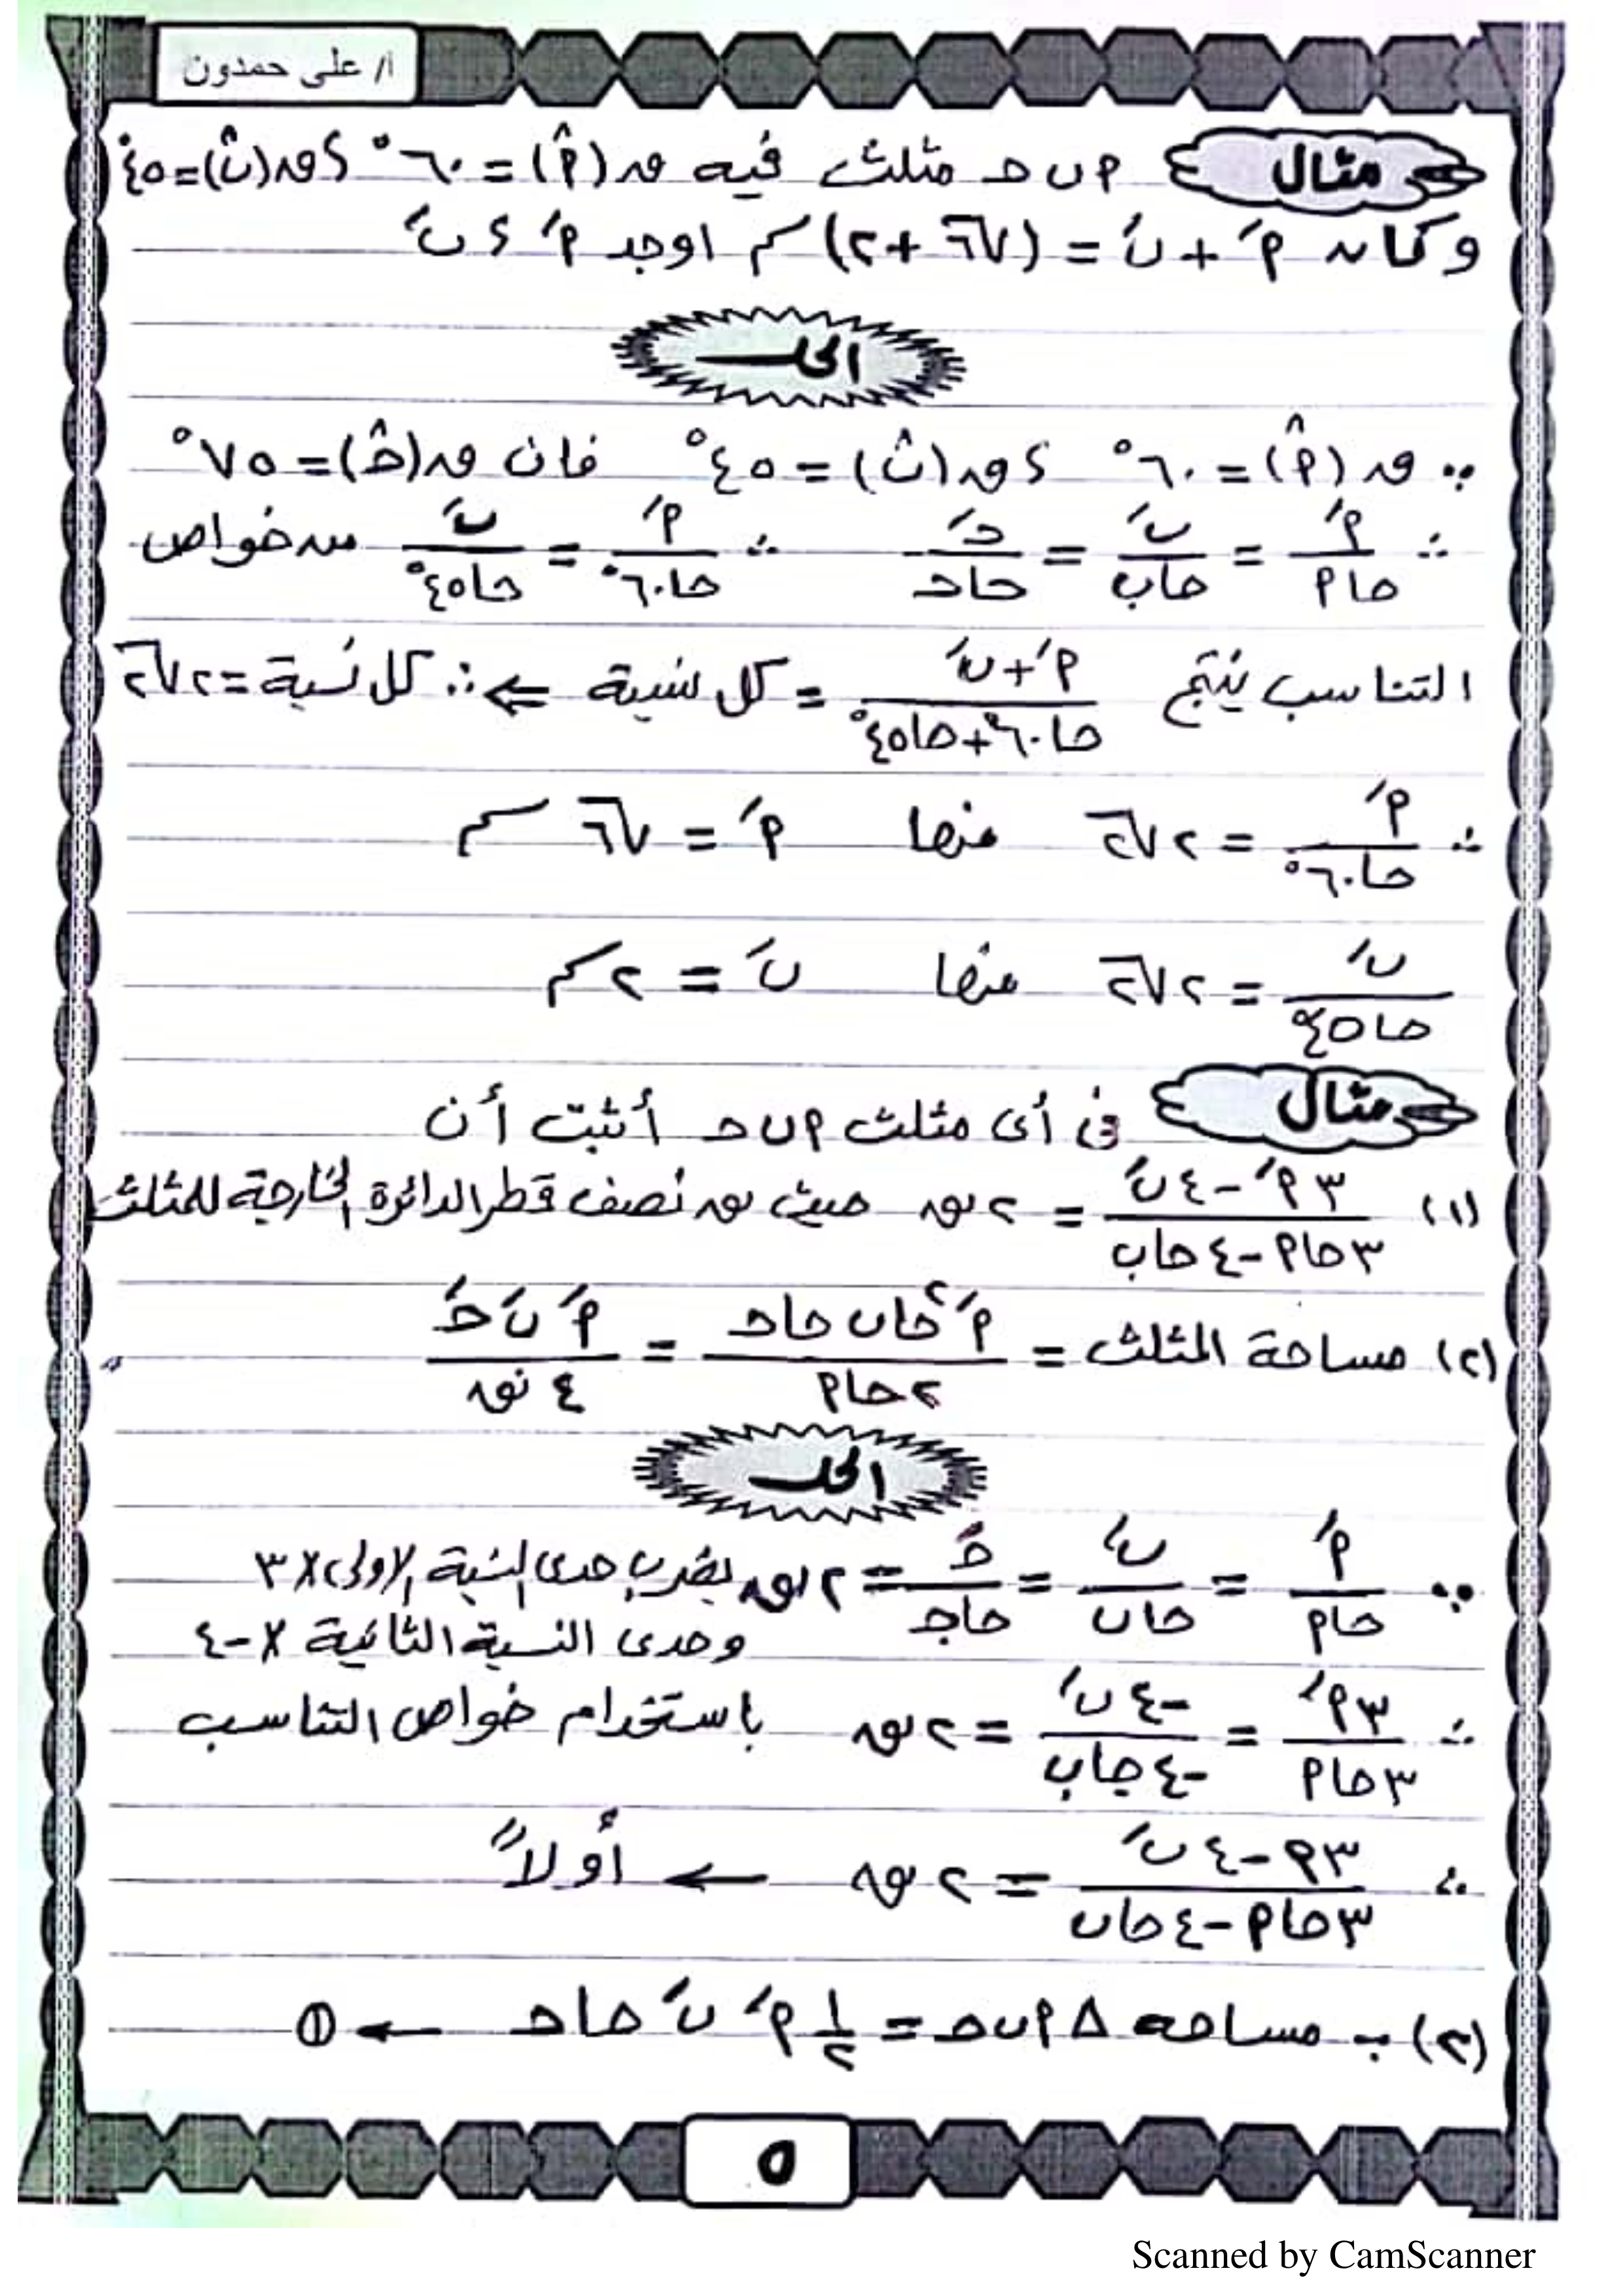 ا/ على حمدون
مثال
٢ ب حـ مثلث فيه ق(أ̂) = ٦٠° ، ق(ب̂) = ٤٥°
وكان أَ + بَ = (√٦ + ٢) سم اوجد أَ ، بَ
الحل
∵ ق(أ̂) = ٦٠° ، ق(ب̂) = ٤٥° فان ق(حـ̂) = ٧٥°
∴ أَ/حاأ = بَ/حاب = حـَ/حاحـ ∴ أَ/حا٦٠° = بَ/حا٤٥° من خواص
التناسب ينتج (أَ + بَ)/(حا٦٠° + حا٤٥°) = كل نسبة ⇐ ∴ كل نسبة = ٢√٢
∴ أَ/حا٦٠° = ٢√٢ منها أَ = √٦ سم
بَ/حا٤٥° = ٢√٢ منها بَ = ٢ سم
مثال
فى أى مثلث أ ب حـ أثبت أن
(١) (٣أَ - ٤بَ)/(٣حاأ - ٤حاب) = ٢نق حيث نق نصف قطر الدائرة الخارجة للمثلث
(٢) مساحة المثلث = أَ² حاب حاحـ/٢حاأ = أَ بَ حـَ/٤نق
الحل
∵ أَ/حاأ = بَ/حاب = حـَ/حاجـ = ٢نق بضرب حدى النسبة الاولى × ٣
وحدى النسبة الثانية × -٤
∴ ٣أَ/٣حاأ = -٤بَ/-٤جاب = ٢نق باستخدام خواص التناسب
∴ (٣أ - ٤بَ)/(٣حاأ - ٤حاب) = ٢نق ← أولاً
(٢) ∵ مساحه Δ أ ب حـ = ١/٢ أَ بَ حاحـ ← ①
٥
Scanned by CamScanner